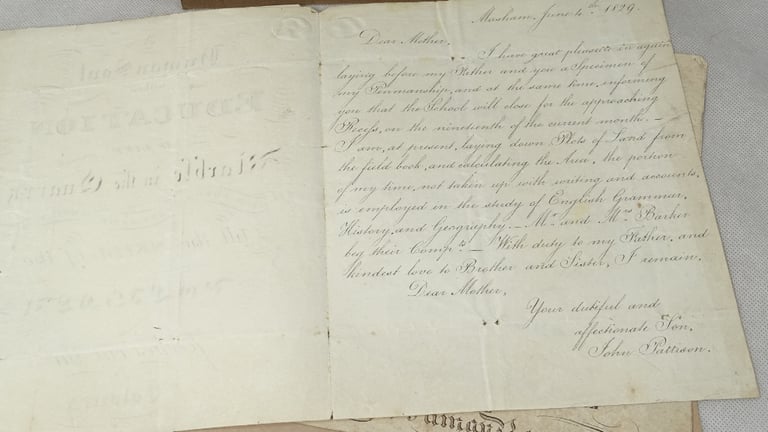 Human Soul
EDUCATION
Marble in the Quarry
Masham, June 4th 1829.
Dear Mother,
I have great pleasure in again
laying before my Father and you a Specimen of
my Penmanship, and at the same time, informing
you that the School will close for the approaching
Recess, on the nineteenth of the current month. –
I am, at present, laying down Plots of Land from
the field book, and calculating the Area, the portion
of my time, not taken up with writing and accounts,
is employed in the study of English Grammar,
History, and Geography. – Mr and Mrs Barker
beg their Compts – With duty to my Father, and
kindest love to Brother and Sister, I remain,
Dear Mother,
Your dutiful and
affectionate Son,
John Pattison.
Human